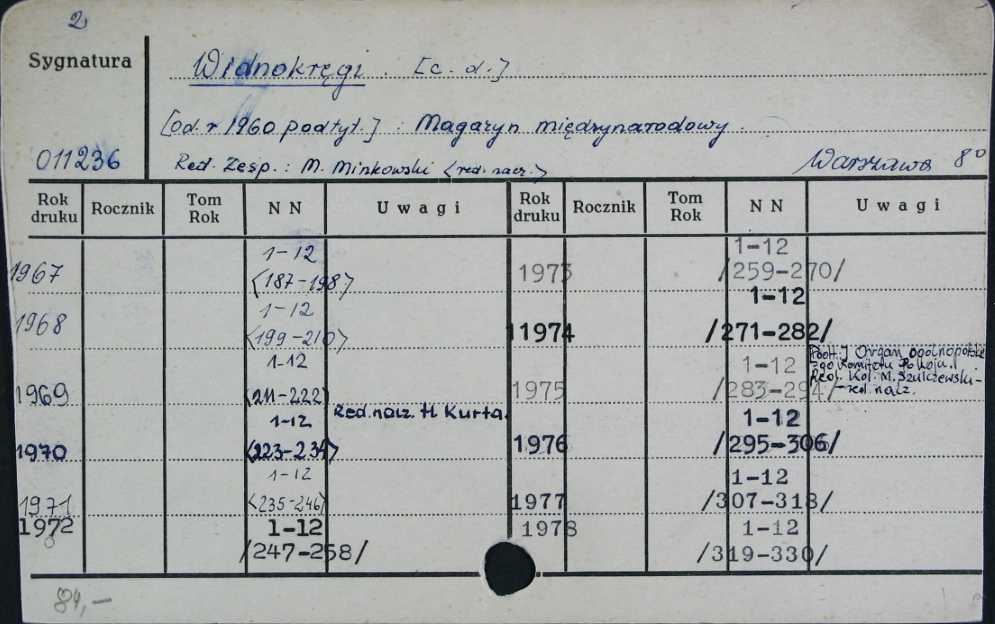 2
Sygnatura
Widnokręgi. [c. d.]
[od r 1960 podtyt.] : Magazyn międzynarodowy.
011236
Red. Zesp.: M. Minkowski <red. nacz.>
Warszawa 8°
Rok druku Rocznik Tom Rok NN Uwagi Rok druku Rocznik Tom Rok NN Uwagi
1967 1-12 <187-198>
1968 1-12 <199-210>
1969 1-12 <211-222>
Red. nacz. H Kurta.
1970 1-12 <223-234>
1971 1-12 <235-246>
1972 1-12 /247-258/
1973 1-12 /259-270/
11974 1-12 /271-282/
1975 1-12 /283-294/
Podt.] Organ ogólnopolskie
-go Komitetu Pokoju.
Red. Kol. M. Szulczewski-
-red. nacz.
1976 1-12 /295-306/
1977 1-12 /307-318/
1978 1-12 /319-330/
84,-